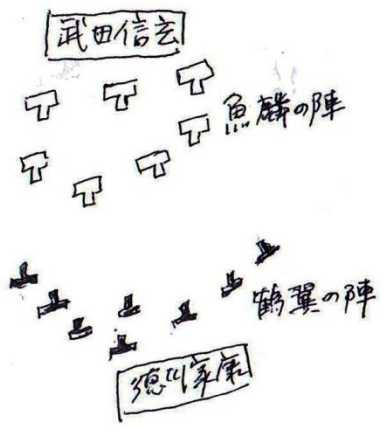 武田信玄
魚鱗の陣
鶴翼の陣
徳川家康